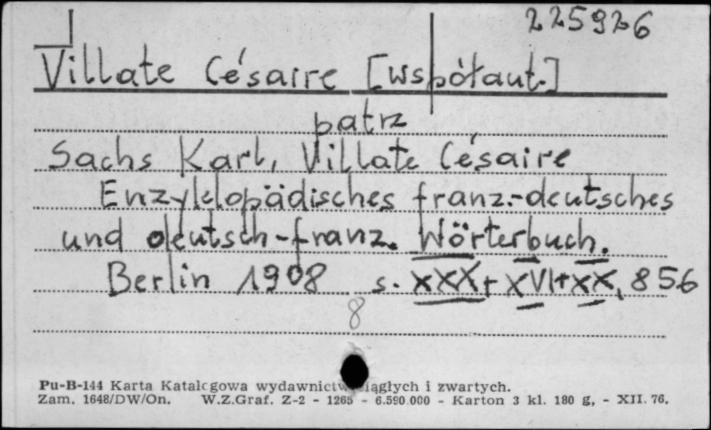 225926
Villate Césaire [współaut.]
patrz
Sachs Karl, Villate Césaire
Enzyklopädisches franz.-deutsches
und deutsch-franz. Wörterbuch.
Berlin 1908 s. XXX+XVI+XX, 856
8
Pu-B-144 Karta Katalogowa wydawnictw ciągłych i zwartych.
Zam. 1648/DW/On. W.Z.Graf. Z-2 - 1265 - 6.590.000 - Karton 3 kl. 180 g, - XII. 76.